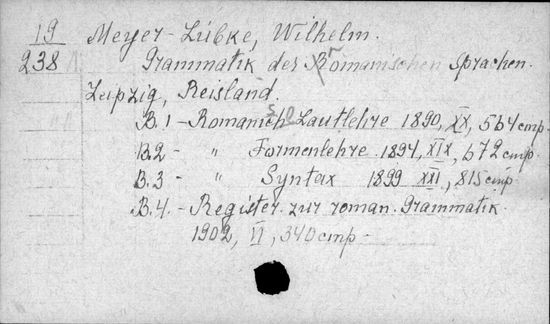 19 Meyer-Lübke, Wilhelm.
238 Grammatik der Romanischen Sprachen.
Leipzig, Reisland,
B.1 - Romanische Lautlehre 1890, XX, 564 стр
B.2 - " Formenlehre 1894, XIX, 672 стр
B.3 - " Syntax 1899 XXI, 815 стр
B.4. - Register zur roman. Grammatik.
1902, VI, 340 стр -